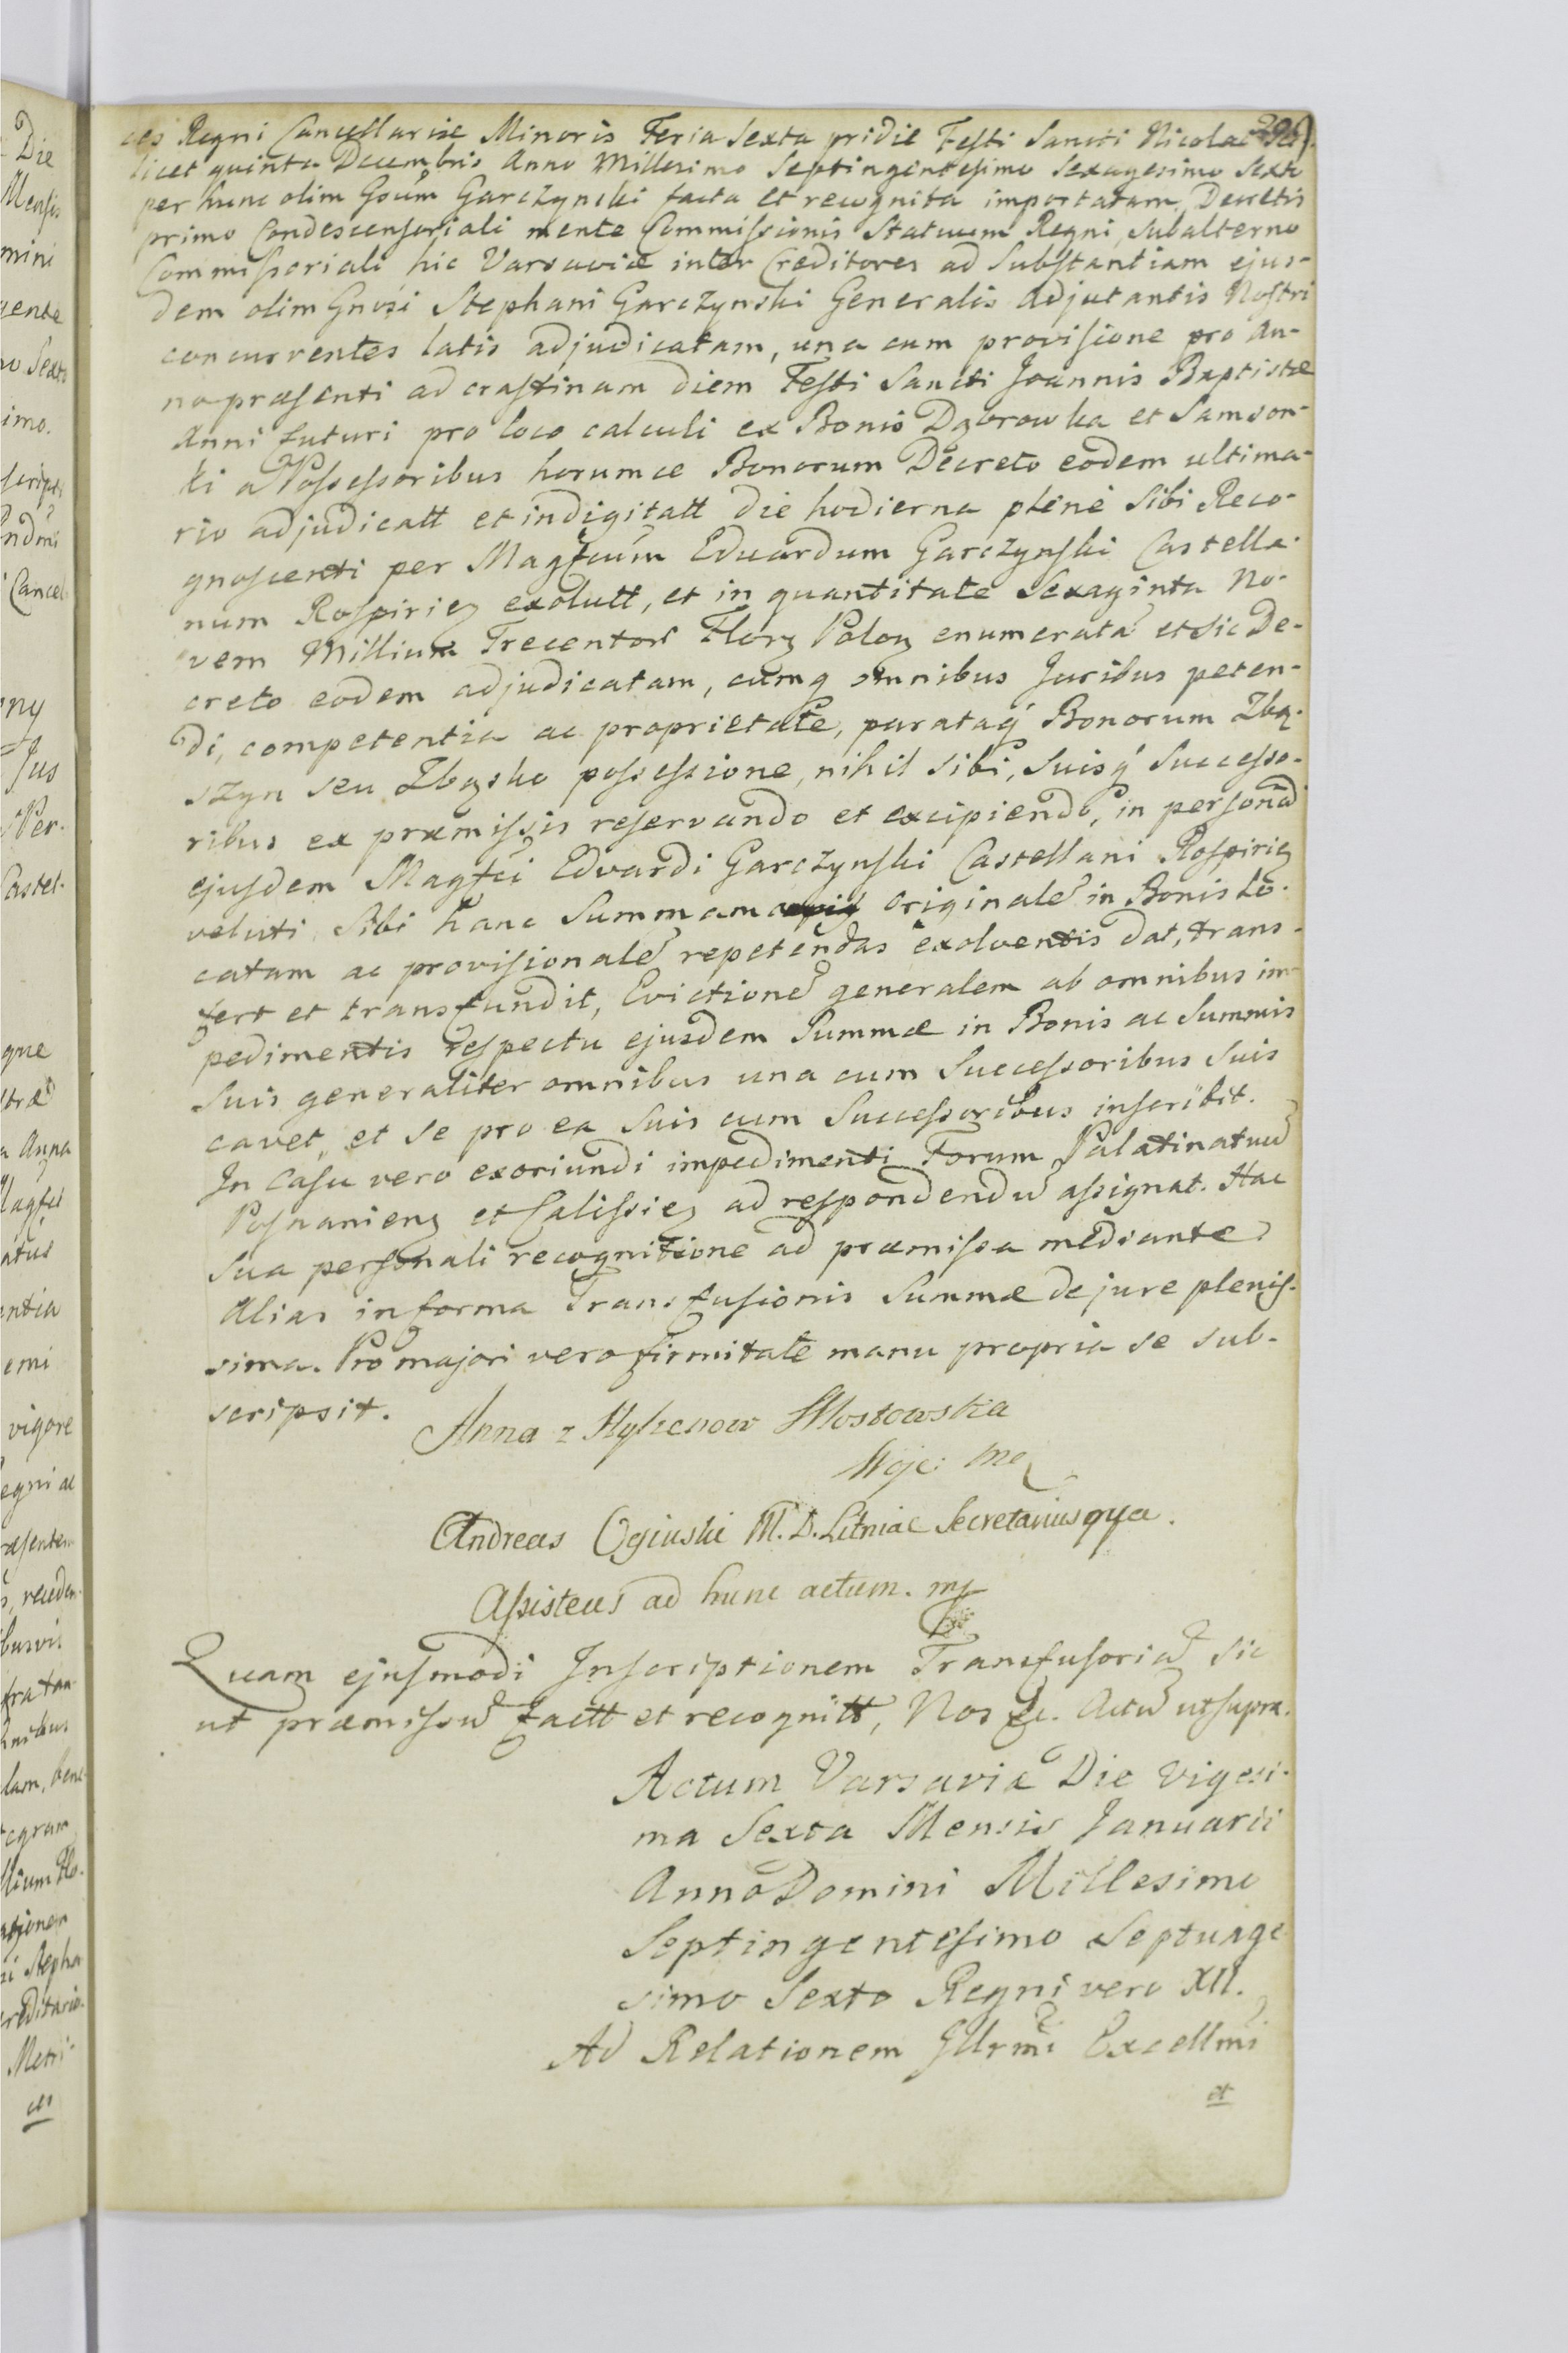 ces Regni Cancellariæ Minoris Feria Sexta pridie Festi Sancti Nicolai
licet quinta Decembris Anno Millesimo Septingentesimo Sexagesimo Sexto
per hunc olim Gsum Garczynski facta et recognita importatam, Decretis
primo Condescensoriali mente Commissionis Statuum Regni, subalterno
Commissoriali hic Varsaviæ inter Creditores ad Substantiam ejus-
dem olim Gnosi Stephani Garczynski Generalis Adjutantis Nostri
concurrentes latis adjudicatam, una cum provisione pro An-
no præsenti ad crastinam diem Festi Sancti Joannis Baptistæ
Anni futuri pro loco calculi ex Bonis Dąbrowka et Samson-
ki a Possessoribus horumce Bonorum Decreto eodem ultima-
rio adjudicatt et indigitatt die hodierna plenè Sibi Reco-
gnoscenti per Magficum Eduardum Garczynski Castella-
num Rospirien exolutt, et in quantitate Sexaginta No-
vem Millium Trecentor Flor Polon enumerata et sic De-
creto eodem adjudicatam, cumq omnibus Juribus peten-
di, competentia ac proprietate, parataq Bonorum Zbą-
szyn seu Zbąsko possessione, nihil sibi, suisq Successo-
ribus ex præmissis reservando et excipiendo, in personam
ejusdem Magfci Edvardi Garczynski Castellani Rospirien
veluti Sibi hanc Summam originale in Bonis lo-
catam ac provisionale repetendas exolventis dat, trans-
fert et transfundit, Evictione generalem ab omnibus im-
pedimentis respectu ejusdem Summæ in Bonis ac Summis
Suis generaliter omnibus una cum Successoribus Suis
cavet, et se pro ea Suis cum Successoribus inscribit.
In Casu vero exoriundi impedimenti Forum Palatinatuu
Posnanien et Calissien ad respondendu assignat. Hac
Sua personali recognitione ad præmissa mediante
Alias in forma Transfusionis Summæ de jure plenis-
sima. Pro majori vero firmitate manu propria se sub-
scripsit.
Anna z Mostowska
Woje: Ma
Andreas Oginski M. D. Litniae Secretarius qua
Assistens ad hunc actum. mp
Quam ejusmodi Inscriptionem Transfusoria sic
ut præmissu factt et recognitt, Nos &c. Actu ut supra.
Actum Varsavia Die Vigesi-
ma Sexta Mensis Januarii
Anno Domini Millesimo
Septingentesimo Septuage
simo Sexto Regni vero XII.
Ad Relationem Illrmi Excellmi
et